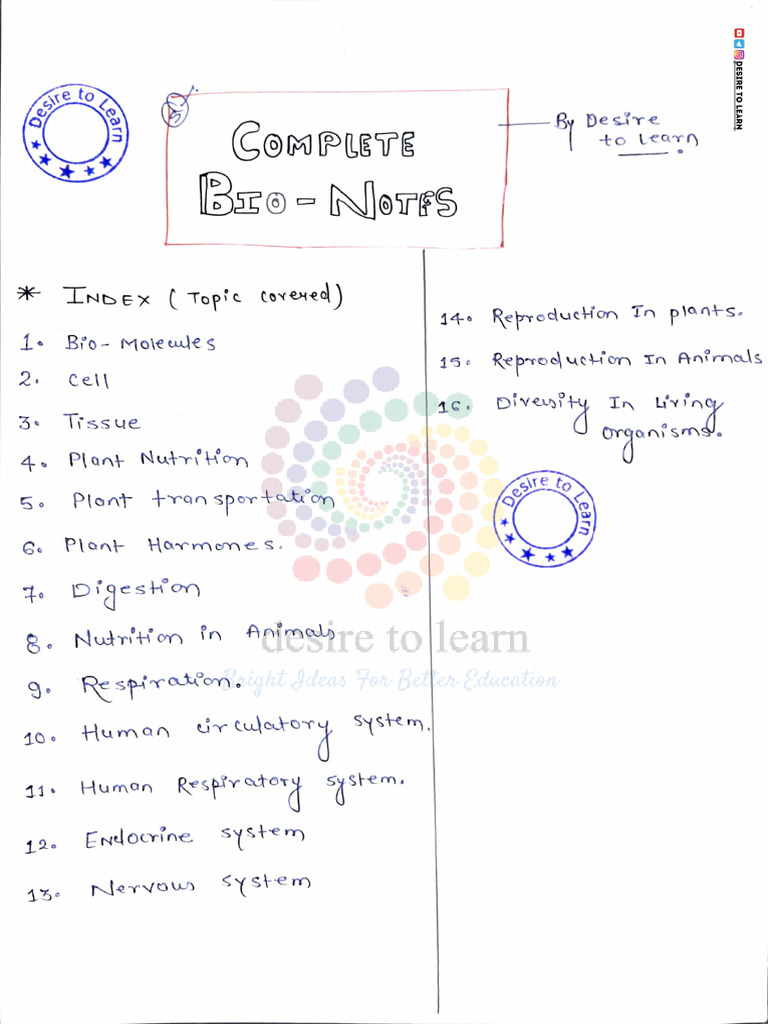 DESIRE TO LEARN
Desire to Learn
COMPLETE
BIO - NOTES
By Desire
to learn.
* INDEX ( Topic covered)
1. Bio - Molecules
2. Cell
3. Tissue
4. Plant Nutrition
5. Plant transportation
6. Plant Harmones.
7. Digestion
8. Nutrition in Animals
9. Respiration.
10. Human circulatory system.
11. Human Respiratory system.
12. Endocrine system
13. Nervous system
14. Reproduction In plants.
15. Reproduction In Animals
16. Diversity In Living
organisms.
Desire to Learn
desire to learn
Bright Ideas For Better Education